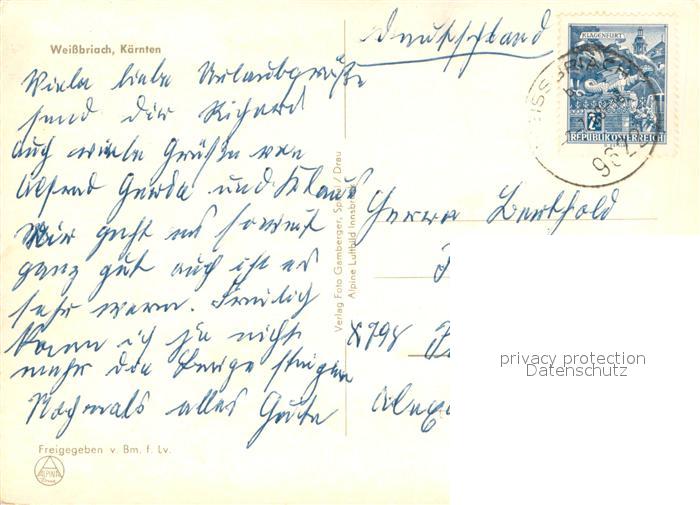 Weißbriach, Kärnten
Deutschland
KLAGENFURT
REPUBLIK ÖSTERREICH
Viele liebe Urlaubsgrüße
send dir Richard
auch viele Grüße von
Alfred Gerda und Klaus
Mir geht es soweit
ganz gut auch ist es
sehr warm. Freilich
kann ich ja nicht
mehr die Berge steigen
Nochmals alles Gute
Herrn Berthold
8798
Verlag Foto Gamberger, Spittal / Drau
Alpine Luftbild Innsbruck
Freigegeben v. Bm. f. Lv.
ALPINA
privacy protection
Datenschutz